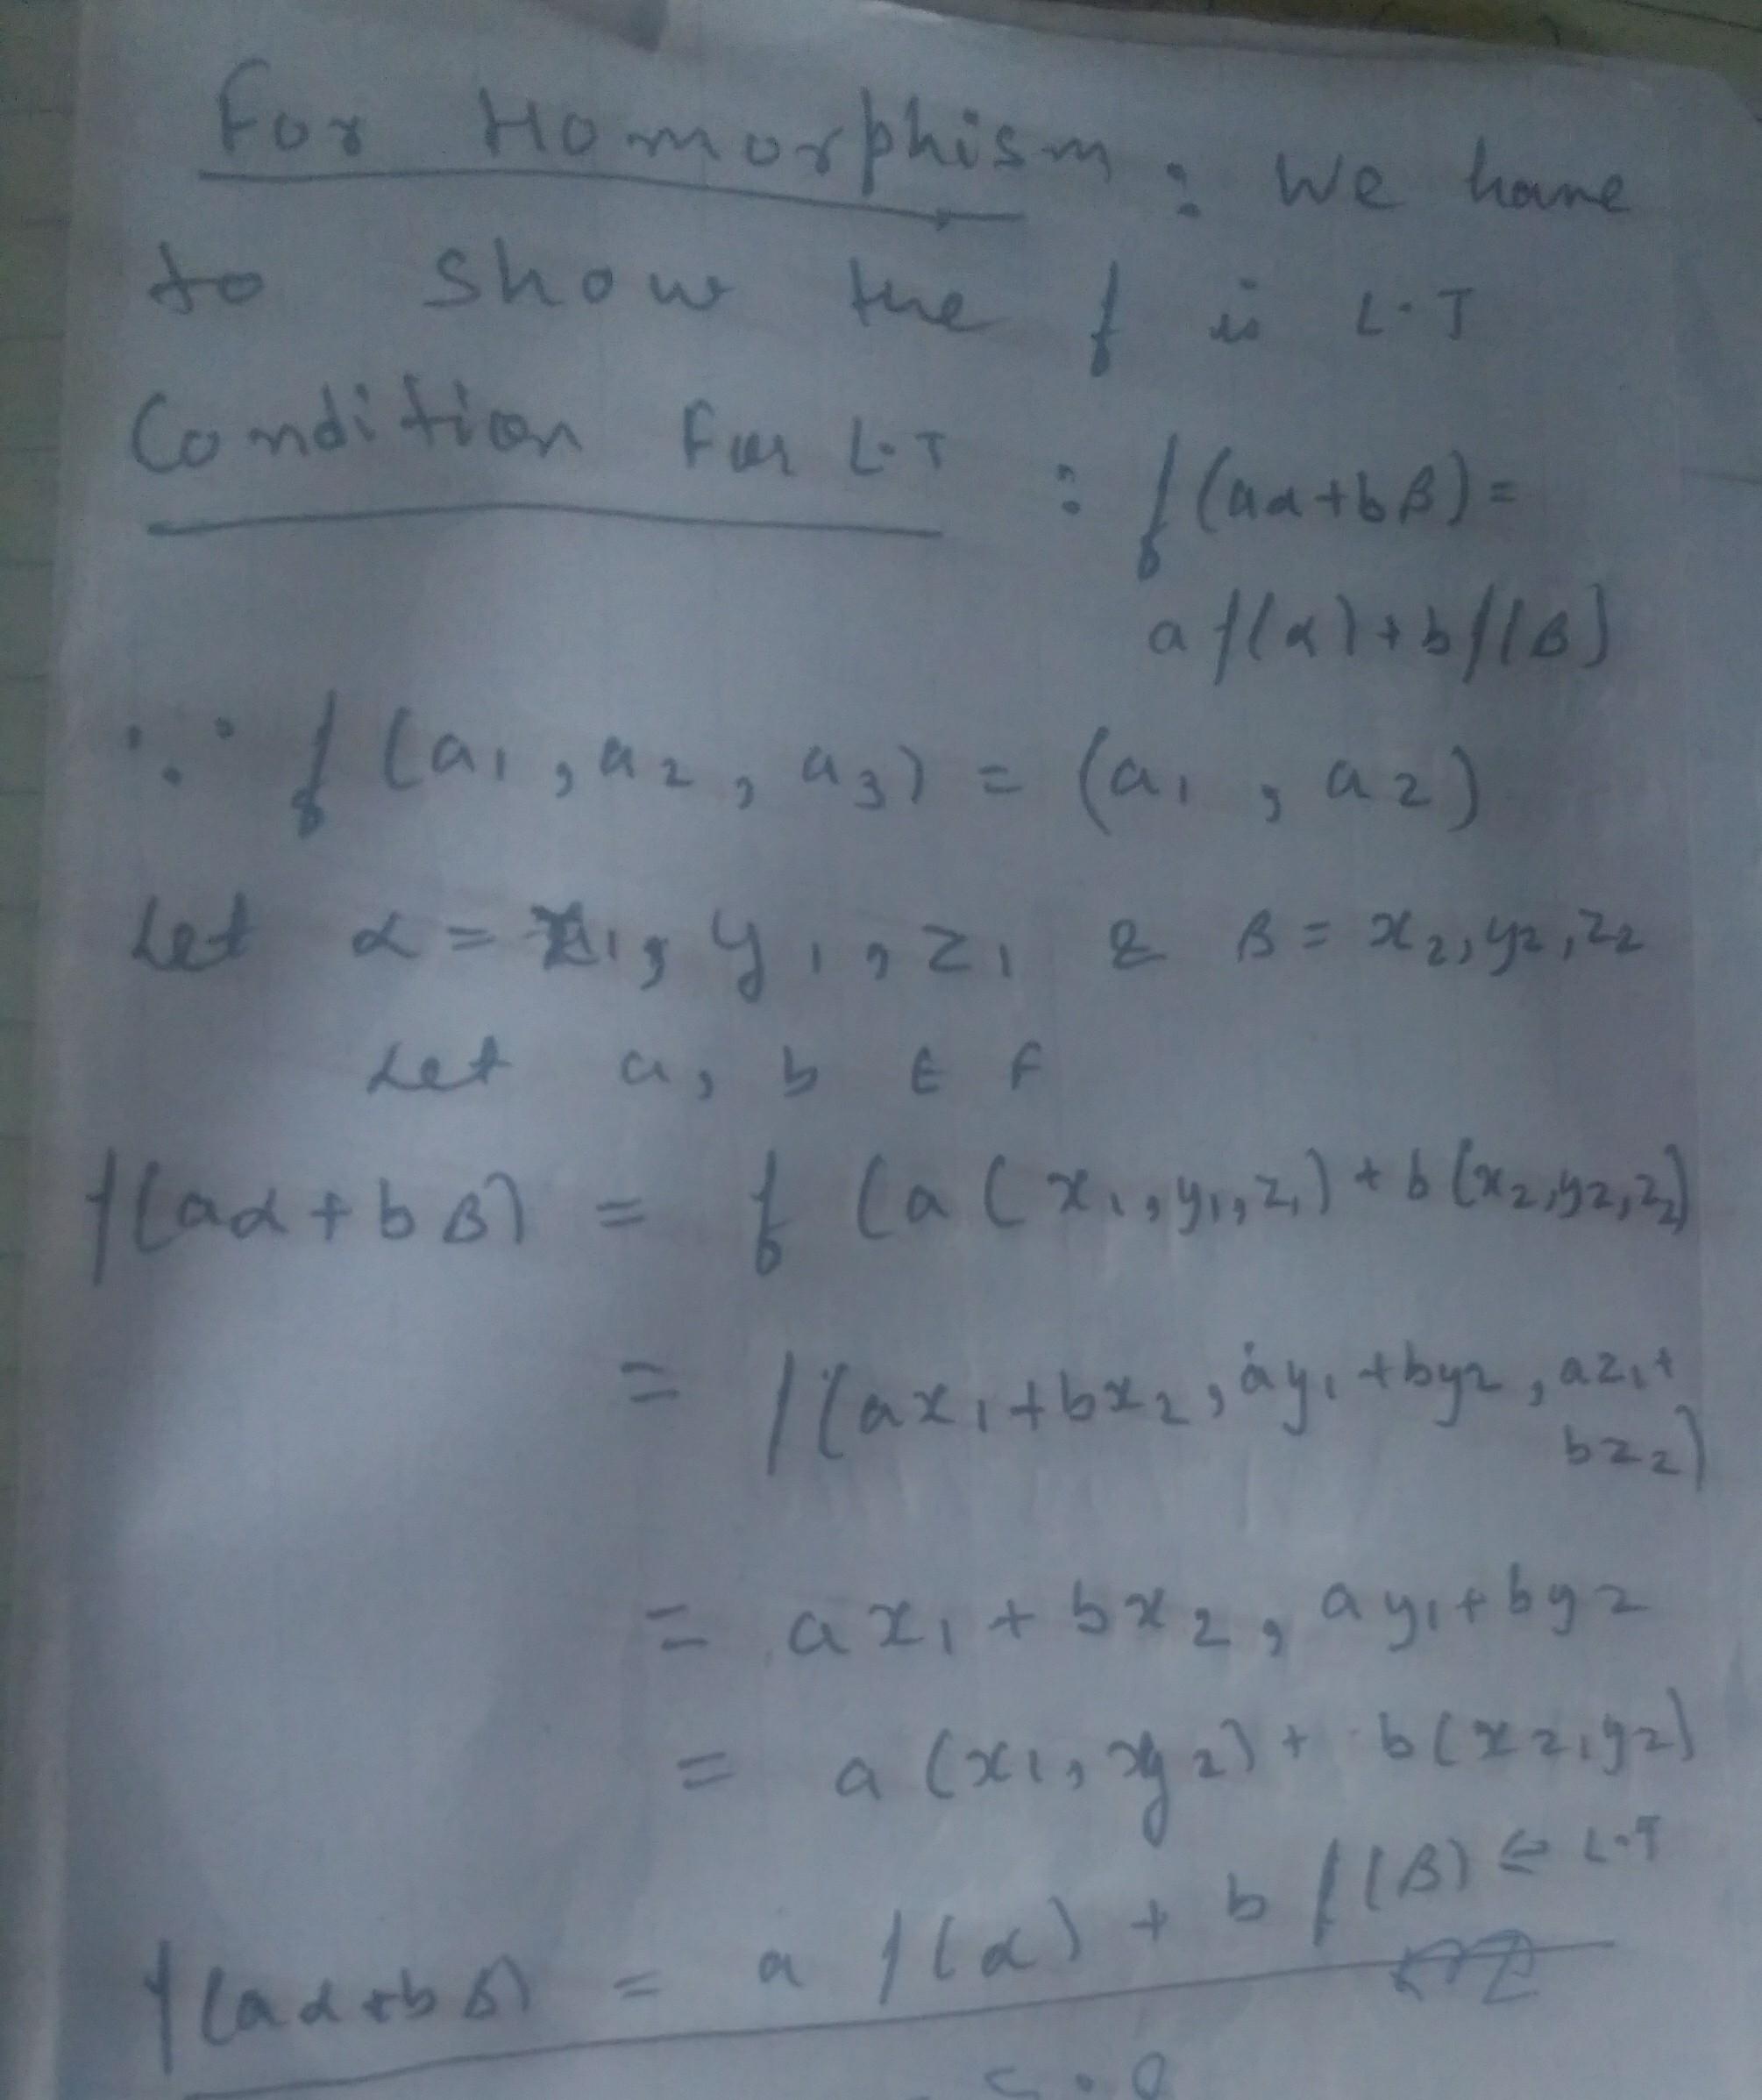 For Homorphism : We have
to show the f is L.T
Condition For L.T : f(aα+bβ)=
a f(α)+b f(β)
∵ f(a1, a2, a3) = (a1, a2)
Let α = x1, y1, z1 & β = x2, y2, z2
Let a, b ∈ F
f(aα+bβ) = f(a(x1,y1,z1)+b(x2,y2,z2)
= f(ax1+bx2, ay1+by2, az1+
bz2)
= ax1+bx2, ay1+by2
= a(x1, y2)+b(x2,y2)
f(aα+bβ) = a f(α) + b f(β) ⇐ L.T